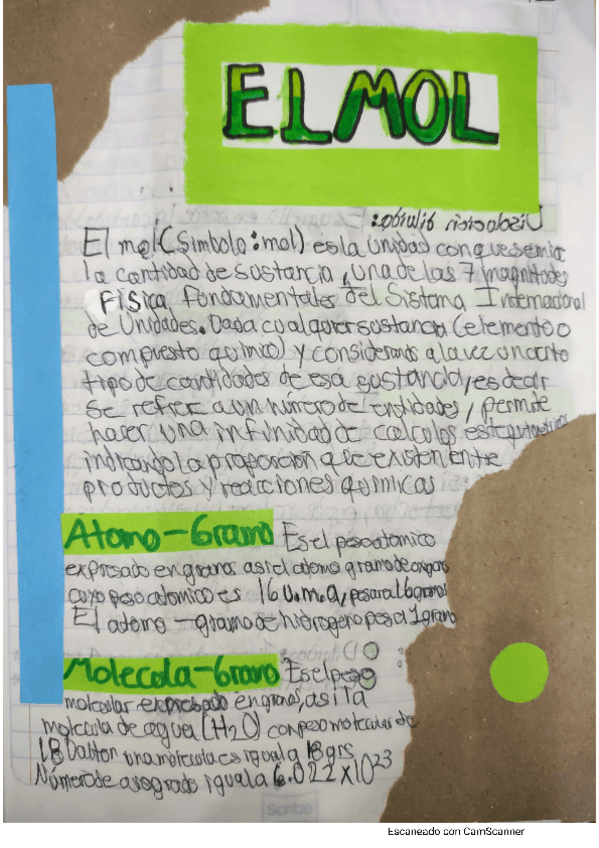 EL MOL
El mol (Simbolo: mol) es la unidad con que se mide
la cantidad de sustancia, una de las 7 magnitudes
FISICA fundamentales del Sistema Internacional
de Unidades. Dada cualquier sustancia (elemento o
compuesto quimico) y considerando a la vez un cierto
tipo de cantidades de esa sustancia, es decir
se refire a un número de entidades, permite
hacer una infinidad de calculos
indicando la proporción que existen entre
productos y reacciones quimicas
Atomo-Gramo Es el peso atomico
expresado en gramos asi el atomo gramo de oxigeno
cuyo peso atomico es 16 u.m.a, pesara 16 gramos
El atomo - gramo de hidrogeno pesa 1 gramo
Molecola-Gramo Es el peso
molecular expresado en gramos, asi la
molecula de agua (H2O) con peso molecular de
18 Dalton una molecula es igual a 18 grs
Número de avogrado igual a 6.022 x 10 23
Scribe
Escaneado con CamScanner